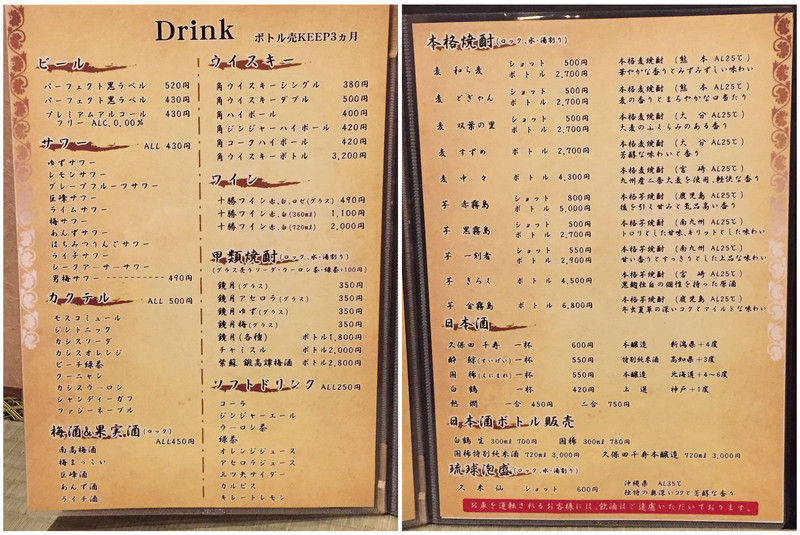 Drink ボトル売KEEP3ヵ月
ビール
パーフェクト黒ラベル 520円
パーフェクト黒ラベル 430円
プレミアムアルコール 430円
フリー ALC.0.00%
サワー ALL 430円
ゆずサワー
レモンサワー
グレープフルーツサワー
巨峰サワー
ライムサワー
梅サワー
あんずサワー
はちみつりんごサワー
ライチサワー
シークアーサーサワー
男梅サワー 490円
カクテル ALL 500円
モスコミュール
ジントニック
カシスソーダ
カシスオレンジ
ピーチ緑茶
クーニャン
カシスウーロン
シャンディーガフ
ファジーネーブル
梅酒&果実酒(ロック)
ALL450円
南高梅酒
梅まっこい
巨峰酒
あんず酒
ライチ酒
ウイスキー
角ウイスキーシングル 380円
角ウイスキーダブル 500円
角ハイボール 400円
角ジンジャーハイボール 420円
角コークハイボール 420円
角ウイスキーボトル 3,200円
ワイン
十勝ワイン赤,白,ロゼ(グラス) 490円
十勝ワイン赤,白(360mℓ) 1,100円
十勝ワイン赤,白(720mℓ) 2,000円
甲類焼酎(ロック、水・湯割り)
(グラス売りソーダ・ウーロン茶・緑茶+100円)
鏡月(グラス) 350円
鏡月アセロラ(グラス) 350円
鏡月ゆず(グラス) 350円
鏡月梅(グラス) 350円
鏡月(各種) ボトル1,800円
チャミスル ボトル2,000円
紫蘇 鍛高譚梅酒 ボトル2,800円
ソフトドリンク ALL250円
コーラ
ジンジャーエール
ウーロン茶
緑茶
オレンジジュース
アセロラジュース
三ツ矢サイダー
カルピス
キレートレモン
本格焼酎(ロック、水・湯割り)
麦 和ら麦 ショット 500円 本格麦焼酎 (熊 本 AL25℃)
ボトル 2,700円 華やかな香りとみずみずしい味わい
麦 どぎゃん ショット 500円 本格麦焼酎 (熊 本 AL25℃)
ボトル 2,700円 麦の香りとまろやかな口当たり
麦 双葉の里 ショット 500円 本格麦焼酎 (大 分 AL25℃)
ボトル 2,700円 大麦のふくらみのある香り
麦 すずめ ショット 500円 本格麦焼酎 (大 分 AL25℃)
ボトル 2,700円 芳醇な味わいと香り
麦 中々 ボトル 4,300円 本格麦焼酎 (宮 崎 AL25℃)
九州産二条大麦を使用、軽快な香り
芋 赤霧島 ショット 800円 本格芋焼酎 (鹿児島 AL25℃)
ボトル 5,000円 後を引く甘みと気品高い香り
芋 黒霧島 ショット 500円 本格芋焼酎 (南九州 AL25℃)
ボトル 2,700円 トロリとした甘味、キリットとした味わい
芋 一刻者 ショット 550円 本格芋焼酎 (南九州 AL25℃)
ボトル 2,900円 甘い香りとすっきりとした上品な味わい
芋 きろく ボトル 4,500円 本格芋焼酎 (宮 崎 AL25℃)
黒麹独自の個性を持った原酒
芋 金霧島 ボトル 6,800円 本格芋焼酎 (鹿児島 AL25℃)
冬虫夏草の深いコクとマイルドな味わい
日本酒
久保田 千寿 一杯 600円 本醸造 新潟県+4度
酔 鯨(すいげい) 一杯 550円 特別純米酒 高知県+3度
国 稀(くにまれ) 一杯 550円 本醸造 北海道+4~6度
白 鶴 一杯 420円 上 選 神戸+1度
熱 燗 一合 450円 二合 750円
日本酒ボトル販売
白鶴 生 300mℓ 700円 国稀 300mℓ 780円
国稀特別純米酒 720mℓ 3,000円 久保田千寿本醸造 720mℓ 3,000円
琉球泡盛(ロック、水・湯割り)
久 米 仙 ショット 600円 沖縄県 AL35℃
独特の奥深いコクと芳醇な香り
お車を運転されるお客様には、飲酒はご遠慮いただいております。